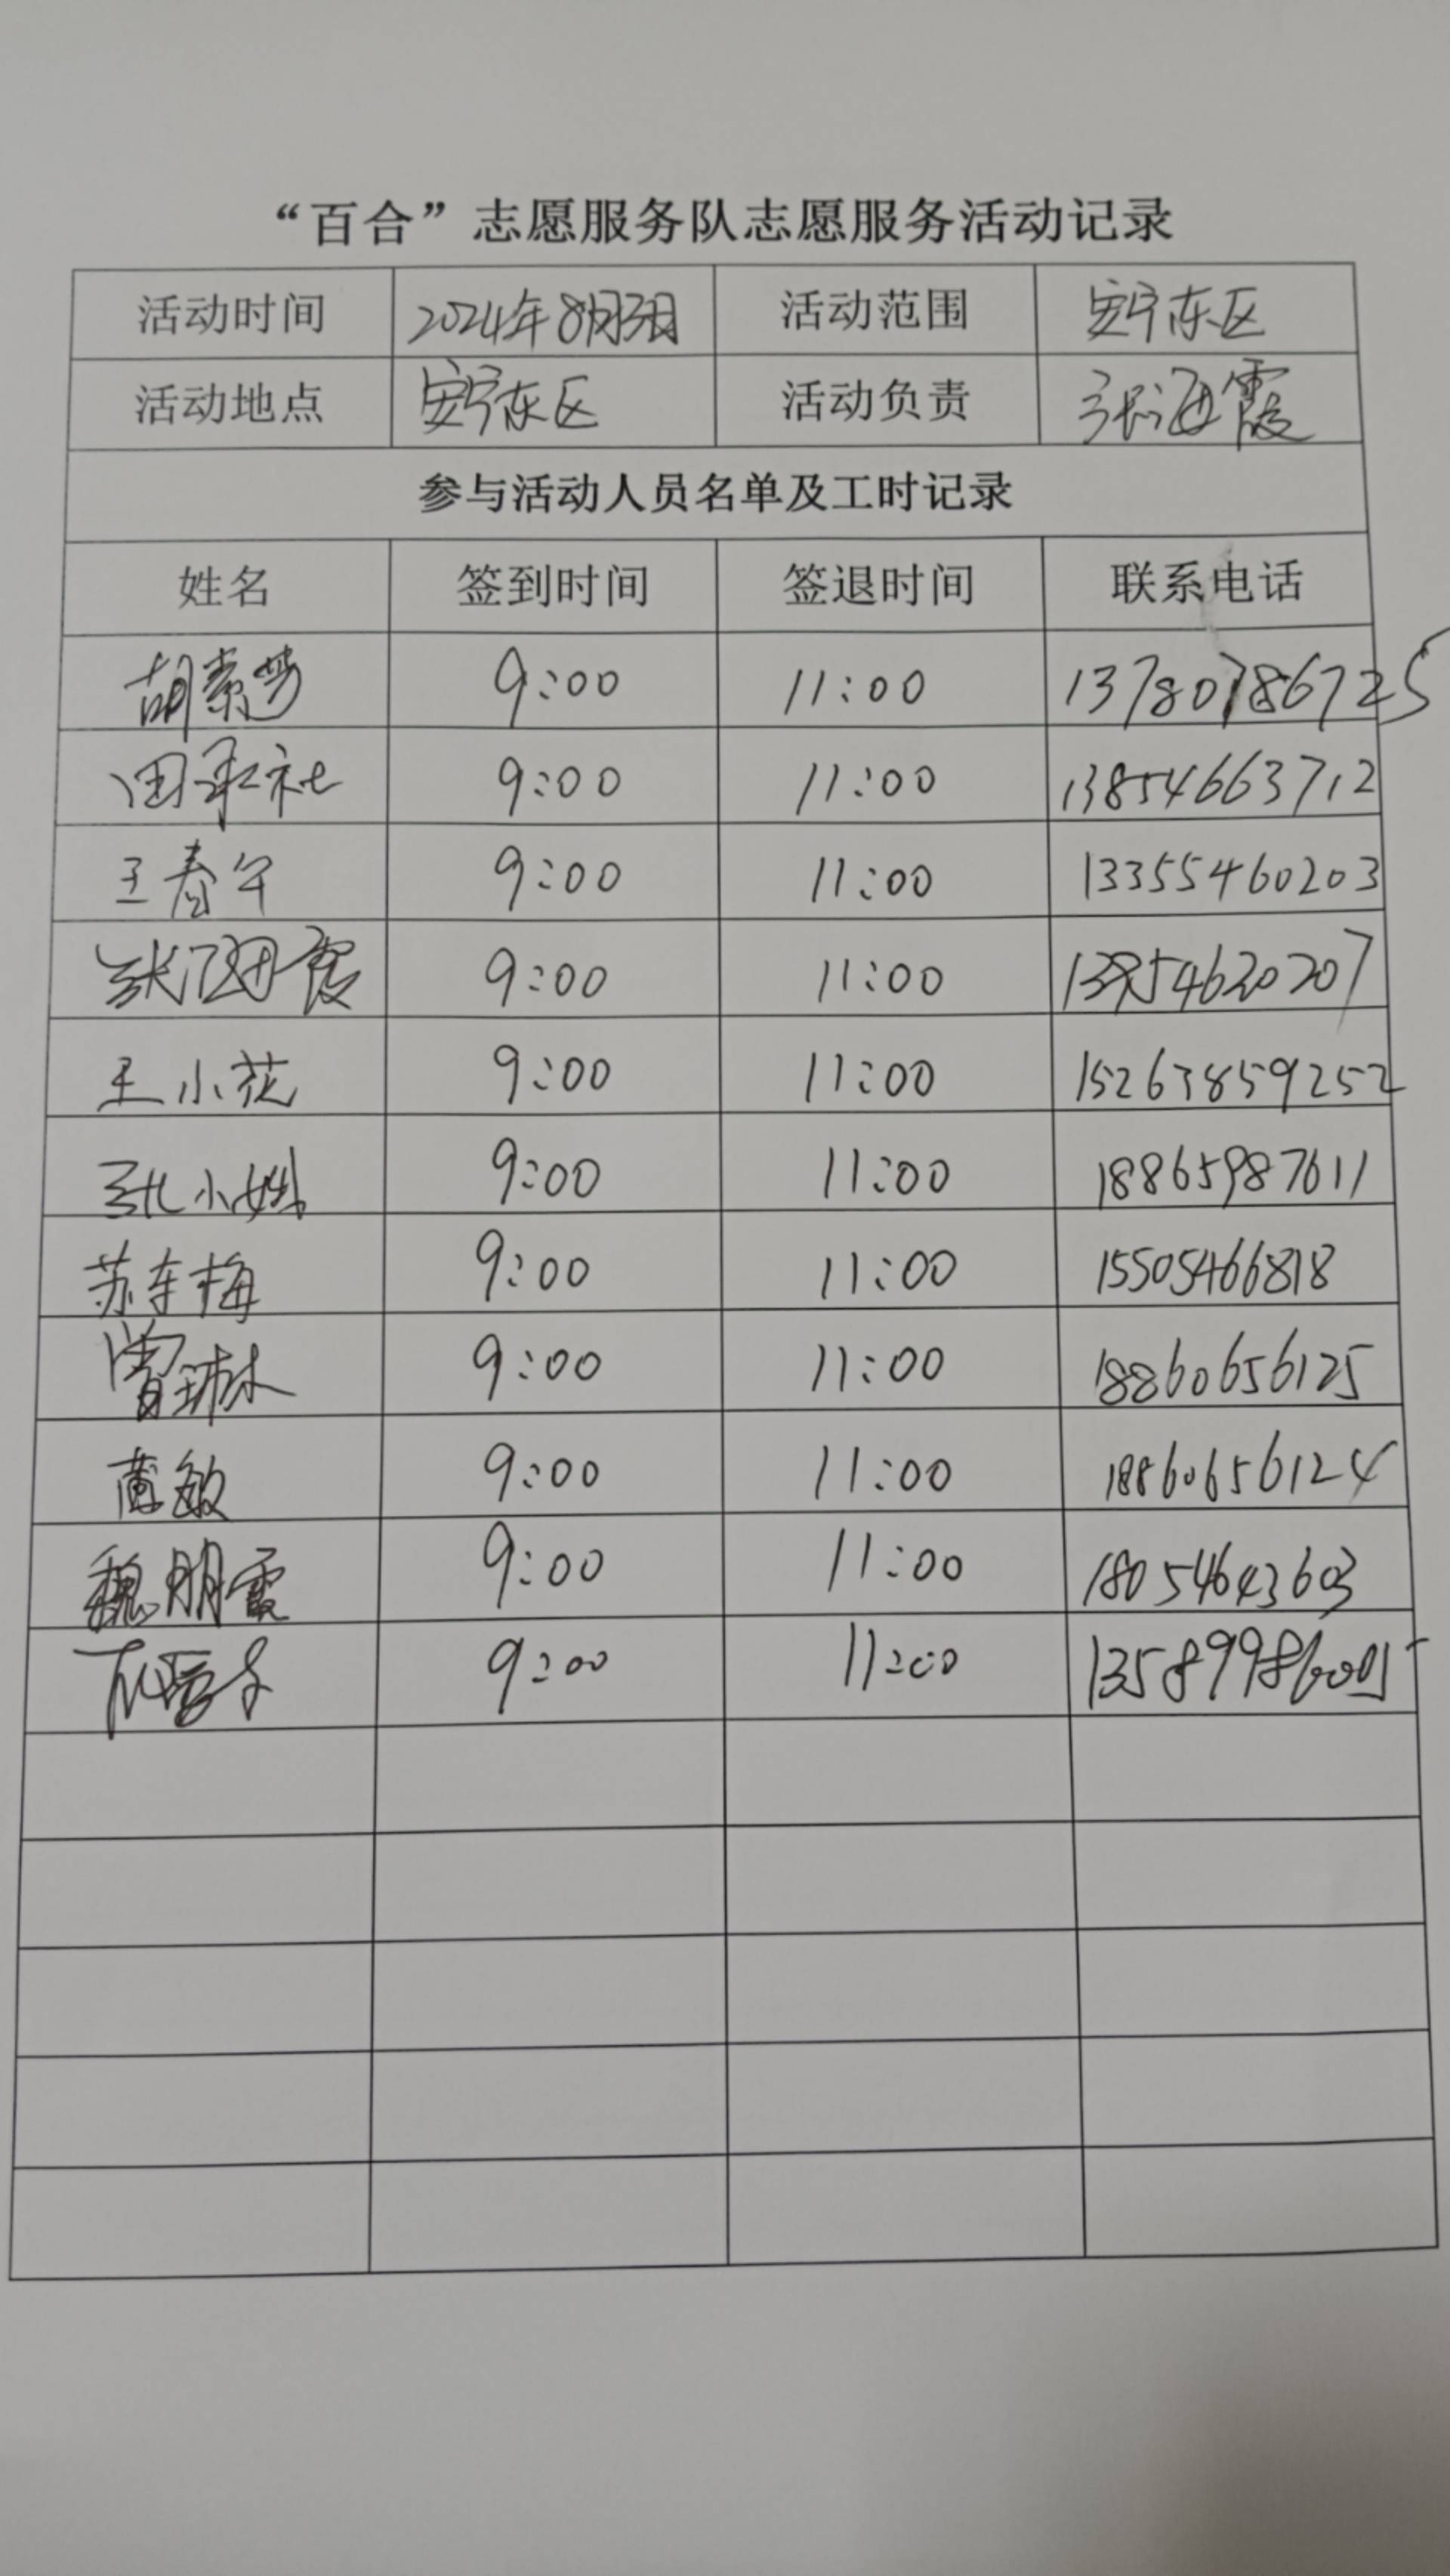 “百合”志愿服务队志愿服务活动记录
活动时间 2024年8月3日 活动范围 安宁东区
活动地点 安宁东区 活动负责 张海霞
参与活动人员名单及工时记录
姓名 签到时间 签退时间 联系电话
胡素芳 9:00 11:00 13780786725
田承社 9:00 11:00 13854663712
王春午 9:00 11:00 13355460203
张海霞 9:00 11:00
王小花 9:00 11:00 15263859252
张小妹 9:00 11:00 18865987611
苏冬梅 9:00 11:00 15505466818
曾琳 9:00 11:00 18860656125
黄敏 9:00 11:00 18860656124
魏朋霞 9:00 11:00 18054643603
9:00 11:00